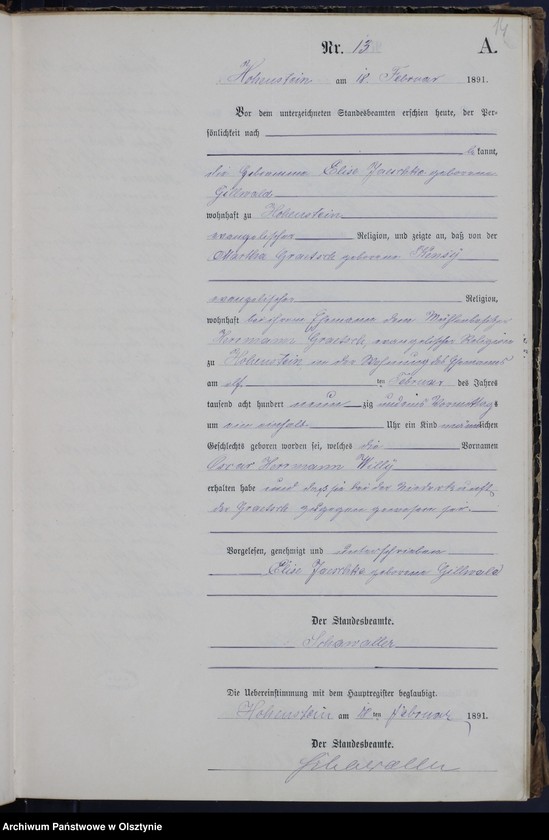 14
Nr. 13 A.
Hohenstein am 18. Februar 1891.
Vor dem unterzeichneten Standesbeamten erschien heute, der Per-
sönlichkeit nach
kannt,
die Hebamme Elise Jaeschke geborene
Gillwald
wohnhaft zu Hohenstein
evangelischer Religion, und zeigte an, daß von der
Martha Graetsch geborene
evangelischer Religion,
wohnhaft bei ihrem Ehemann dem Mühlenbesitzer
Herrmann Graetsch, evangelischer Religion
zu Hohenstein in der Wohnung des Ehemannes
am elf ten Februar des Jahres
tausend acht hundert neun zig und eins Vormittags
um ein einhalb Uhr ein Kind männlichen
Geschlechts geboren worden sei, welches die Vornamen
Oscar Herrmann Willy
erhalten habe und daß sie bei der Niederkunft
der Graetsch zugegen gewesen sei.
Vorgelesen, genehmigt und unterschrieben
Elise Jaeschke geborene Gillwald
Der Standesbeamte.
Schawaller
Die Uebereinstimmung mit dem Hauptregister beglaubigt.
Hohenstein am 18 ten Februar 1891.
Der Standesbeamte.
Schawaller
Archiwum Państwowe w Olsztynie